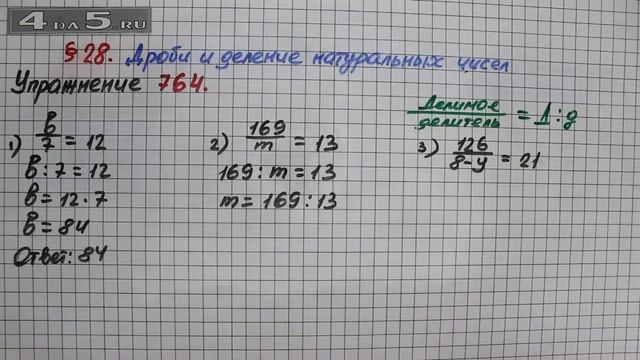 4DA5.RU
§28. Дроби и деление натуральных чисел
Упражнение 764.
Делимое / делитель = Д : д
1) в/7 = 12
в : 7 = 12
в = 12 · 7
в = 84
Ответ: 84
2) 169/m = 13
169 : m = 13
m = 169 : 13
3) 126/8-y = 21